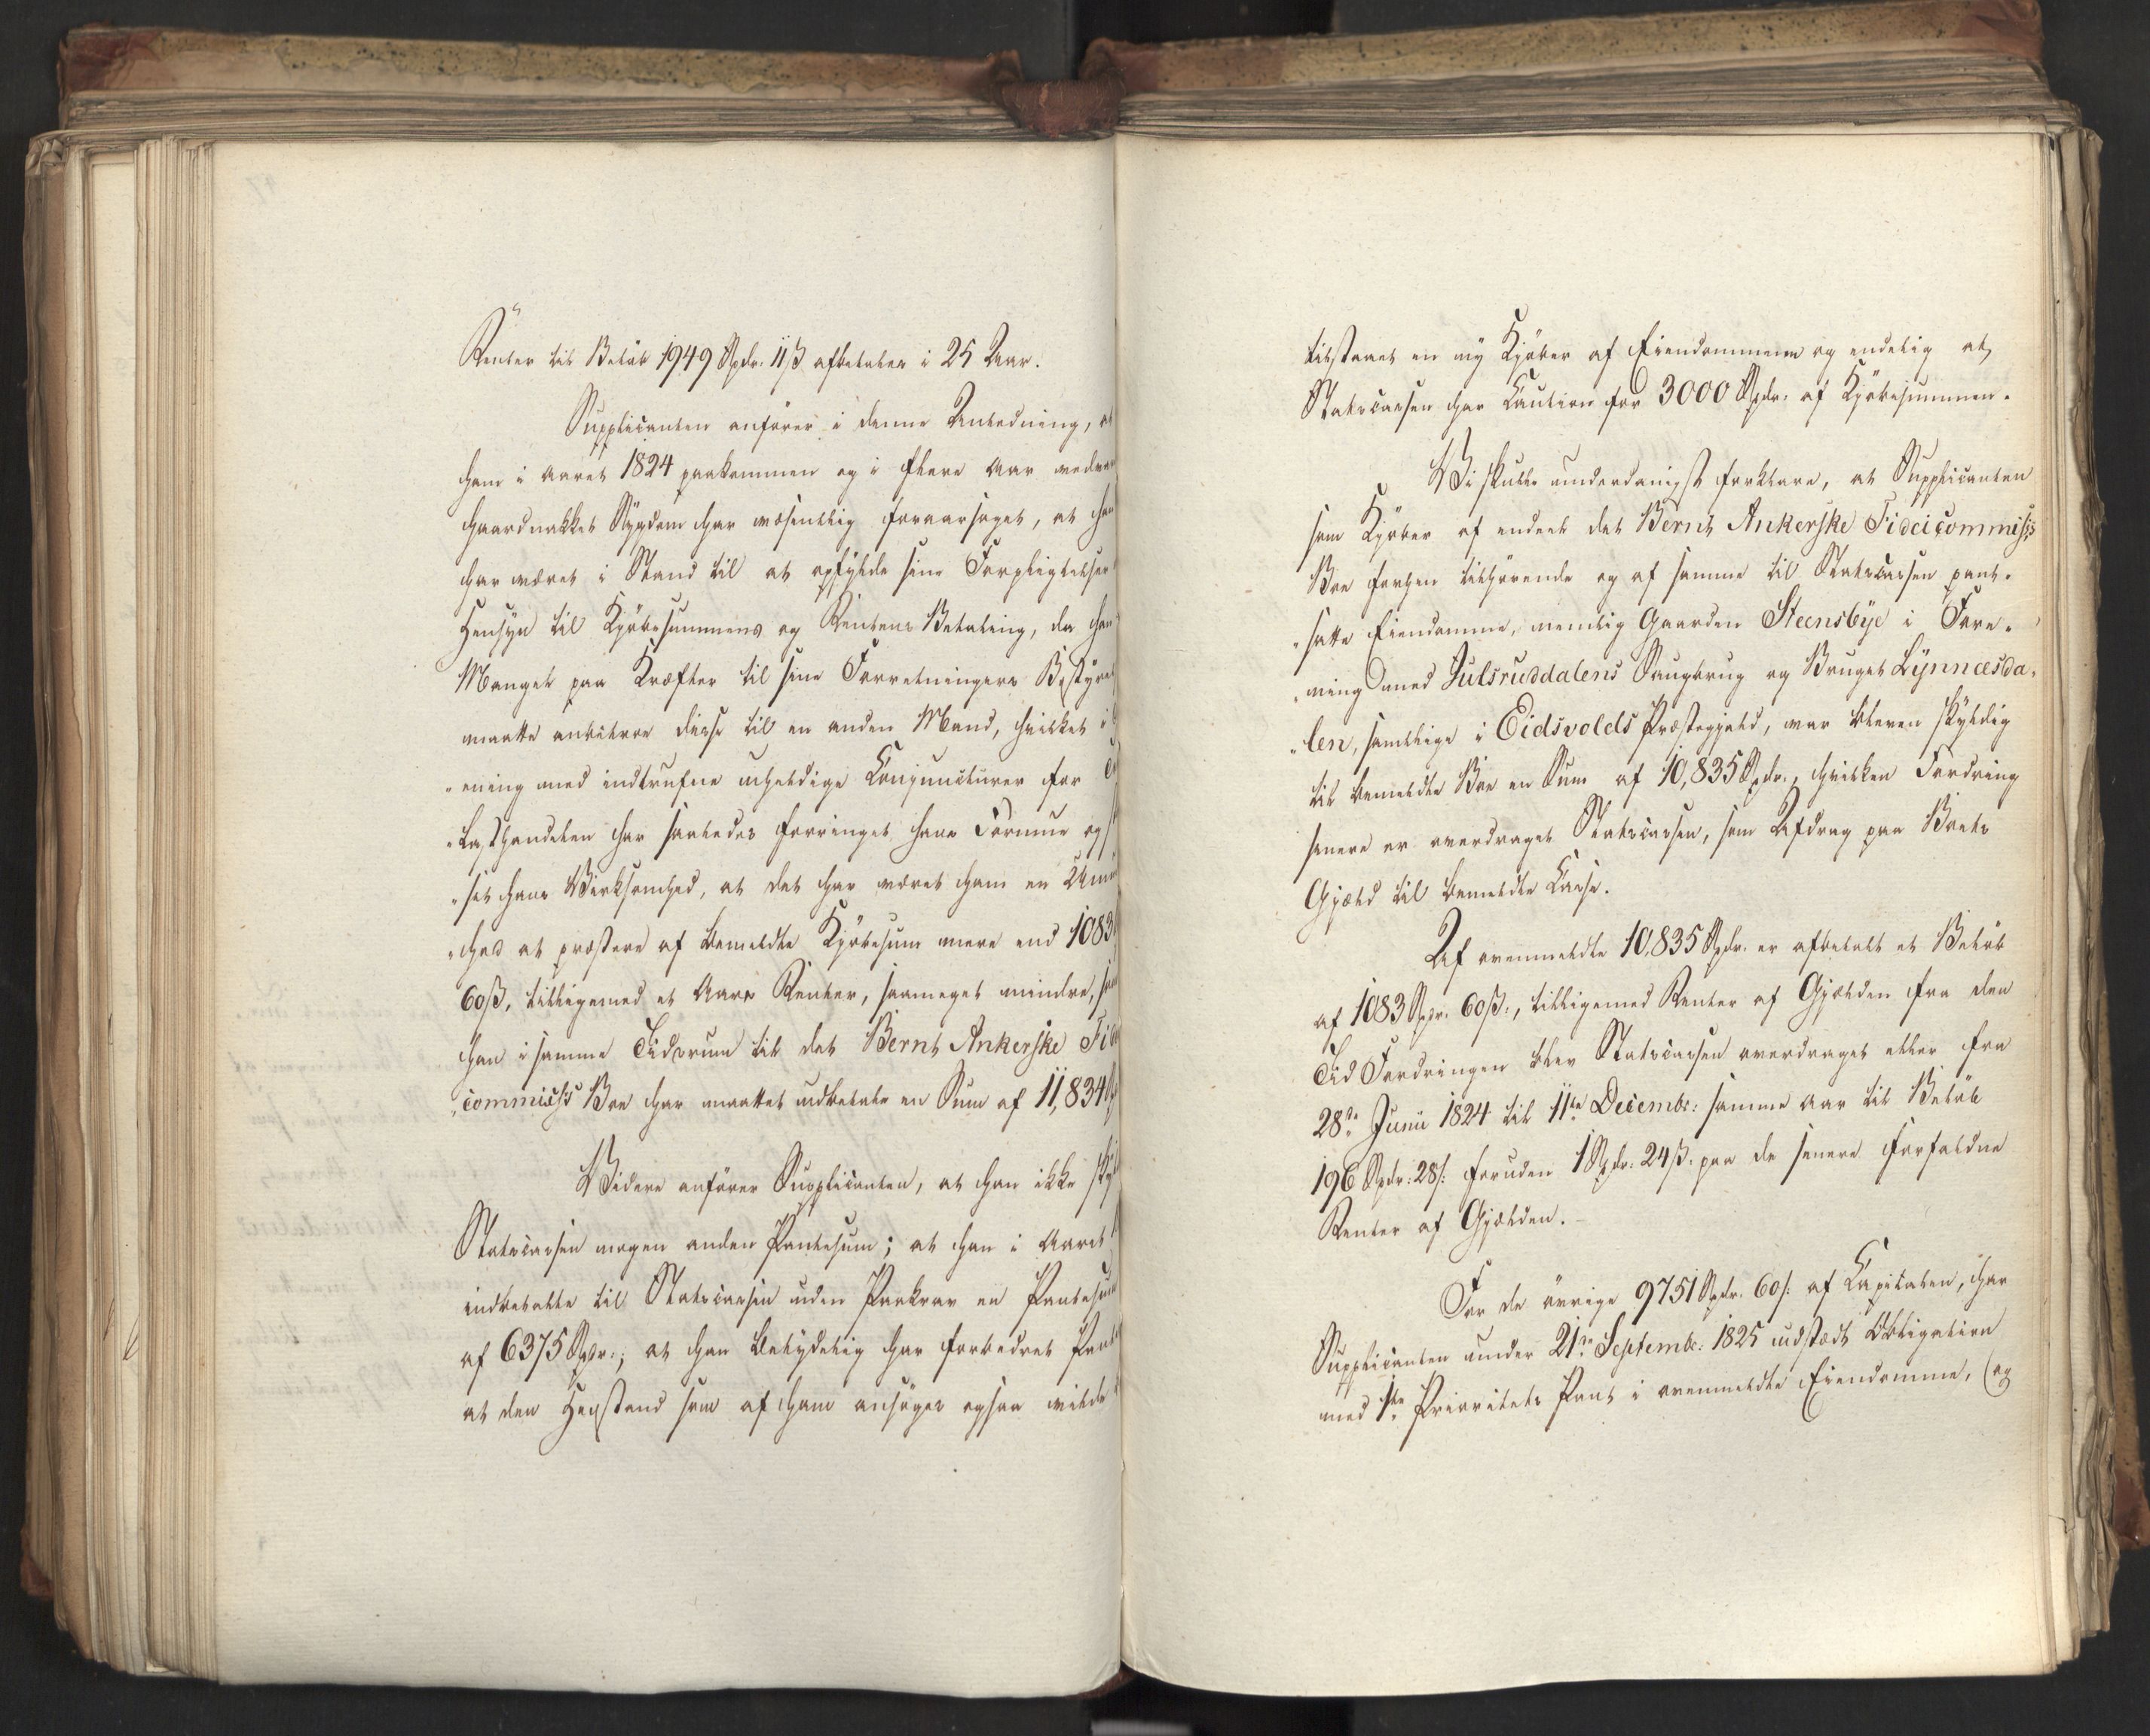 Renter til Beløb 1949 Spdr. 11 ß afbetales i 25 Aar.
Supplicanten anfører i denne Anledning, at
ham i Aaret 1824 paakommen og i flere Aar vedva
haardnakket Sygdom har væsentlig foraarsaget, at han
har været i Stand til at opfylde sine Forpligtelser
Hensyn til Kjøbesummens og Rentens Betaling, da han
Mangel paa Kræfter til sine Forretningers Bestyrel
maatte anbetroe disse til en anden Mand, hvilket i
"ening med indtrufne uheldige Conjuncturer for
"Lasthandelen har saaledes forringet hans Formue og
"set hans Virksomhed, at det har været ham en Umu
"hed at præstere af bemeldte Kjøbesum mere end 1083
60 ß, tilligemed et Aars Renter, saameget mindre, som
han i samme Tidsrum til det Bernt Ankerske Fid
"commiss Boe har maattet udbetale en Sum af 11,834 Sp
Videre anfører Supplicanten, at han ikke sky
Statscassen nogen anden Pantesum; at han i Aaret 1
indbetalte til Statscassen uden Paakrav en Pantesum
af 6375 Spdr.; at han betydelig har forbedret Pant
at den Henstand som af ham ansøges ogsaa vilde
tilstaaet en ny Kjøber af Eiendommene og endelig at
Statscassen har Caution for 3000 Spdr. af Kjøbesummen.
Vi skulle underdanigst forklare, at Supplicanten
som Kjøber af endeel det Bernt Ankerske Fideicommiss
Boe forhen tilhørende og af samme til Statscassen pant-
"satte Eiendomme, nemlig Gaarden Steensbye i Fore-
"ning med Julsruddalens Saugbrug og Bruget Lynnæsda-
"len, samtlige i Eidsvolds Præstegjeld, var bleven skyldig
til bemeldte Boe en Sum af 10,835 Spdr., hvilken Fordring
senere er overdraget Statscassen, som Afdrag paa Boets
Gjæld til bemeldte Casse.
Af ovenmeldte 10,835 Spdr. er afbetalt et Beløb
af 1083 Spdr. 60 ß., tilligemed Renter af Gjælden fra den
Tid Fordringen blev Statscassen overdraget eller fra
28de Junii 1824 til 11te Decembr: samme Aar til Beløb
196 Spdr: 28 ß: foruden 1 Spdr: 24 ß. paa de senere forfaldne
Renter af Gjælden. –
For de øvrige 9751 Spdr. 60 ß: af Capitalen, har
Supplicanten under 21de Septembr: 1825 udstædt Obligation
med 1ste Prioritets Pant i ovenmeldte Eiendomme, (og